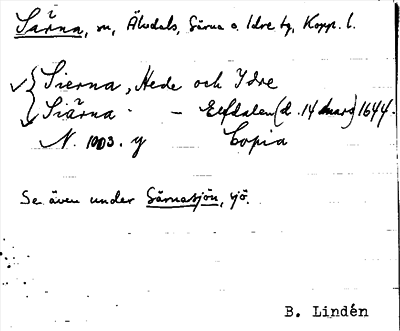 Särna, sn, Älvdals, Särna o. Idre tg, Kopp. l.
Sierna, Hede och Ydre
Siärna - Elfdalen (d. 14 mars) 1644.
N. 1003. y Copia
Se även under Särnasjön, sjö.
B. Lindén